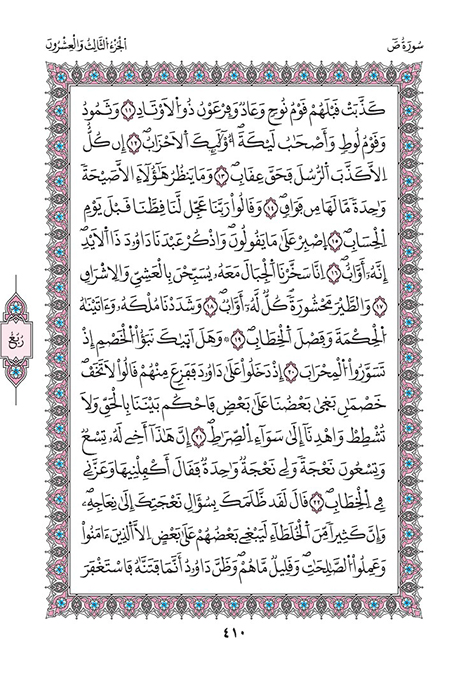 سُورَةُ صٓ
اَلْجُزْءُ اُلثَّالِثُ وَالْعِشْرُونَ
كَذَّبَتْ قَبْلَهُمْ قَوْمُ نُوحٍ وَعَادٌ وَفِرْعَوْنُ ذُو اُلَاوْتَادِ ١١ وَثَمُودُ
وَقَوْمُ لُوطٍ وَأَصْحَٰبُ لَيْكَةَ أُوْلَٰٓئِكَ اَلَاحْزَابُ ١٢ إِن كُلٌّ
اِلَّا كَذَّبَ اَلرُّسُلَ فَحَقَّ عِقَابِ ١٣ وَمَا يَنظُرُ هَٰٓؤُلَآءِ اِلَّا صَيْحَةً
وَٰحِدَةً مَّا لَهَا مِن فَوَاقٍ ١٤ وَقَالُواْ رَبَّنَا عَجِّل لَّنَا قِطَّنَا قَبْلَ يَوْمِ
اِلْحِسَابِ ١٥ اِصْبِرْ عَلَىٰ مَا يَقُولُونَ وَاذْكُرْ عَبْدَنَا دَاوُۥدَ ذَا اَلَايْدِ
إِنَّهُۥٓ أَوَّابٌ ١٦ اِنَّا سَخَّرْنَا اَلْجِبَالَ مَعَهُۥ يُسَبِّحْنَ بِالْعَشِيِّ وَالِاشْرَاقِ
١٧ وَالطَّيْرَ مَحْشُورَةً كُلٌّ لَّهُۥٓ أَوَّابٌ ١٨ وَشَدَدْنَا مُلْكَهُۥ وَءَاتَيْنَٰهُ
اُلْحِكْمَةَ وَفَصْلَ اَلْخِطَابِ ١٩ وَهَلَ اَتَيٰكَ نَبَؤُاْ اُلْخَصْمِ إِذْ
تَسَوَّرُواْ اُلْمِحْرَابَ ٢٠ إِذْ دَخَلُواْ عَلَىٰ دَاوُۥدَ فَفَزِعَ مِنْهُمْ قَالُواْ لَا تَخَفْ
خَصْمَٰنِ بَغَىٰ بَعْضُنَا عَلَىٰ بَعْضٍ فَاحْكُم بَيْنَنَا بِالْحَقِّ وَلَا
تُشْطِطْ وَاهْدِنَآ إِلَىٰ سَوَآءِ اِلصِّرَٰطِ ٢١ إِنَّ هَٰذَآ أَخِي لَهُۥ تِسْعٌ
وَتِسْعُونَ نَعْجَةً وَلِي نَعْجَةٌ وَٰحِدَةٌ فَقَالَ أَكْفِلْنِيهَا وَعَزَّنِي
فِي اِلْخِطَابِ ٢٢ قَالَ لَقَد ظَّلَمَكَ بِسُؤَالِ نَعْجَتِكَ إِلَىٰ نِعَاجِهِۦ
وَإِنَّ كَثِيراً مِّنَ اَلْخُلَطَآءِ لَيَبْغِي بَعْضُهُمْ عَلَىٰ بَعْضٍ اِلَّا اَلذِينَ ءَامَنُواْ
وَعَمِلُواْ اُلصَّٰلِحَٰتِ وَقَلِيلٌ مَّا هُمْ وَظَنَّ دَاوُۥدُ أَنَّمَا فَتَنَّٰهُ فَاسْتَغْفَرَ
رُبُع
٤١٠